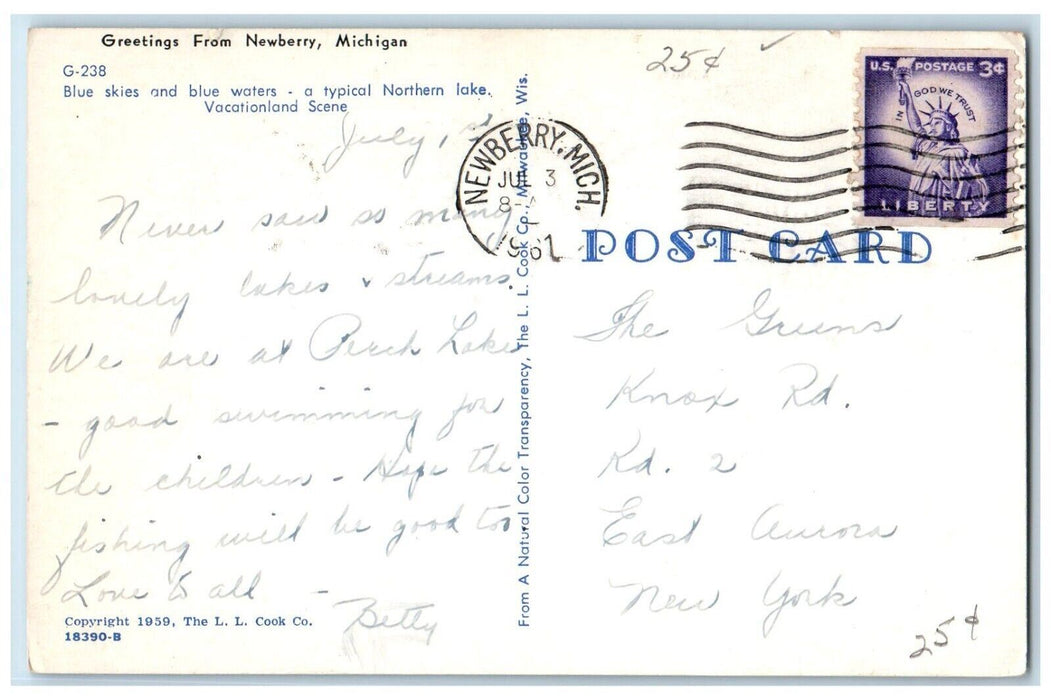 Greetings From Newberry, Michigan
G-238
Blue skies and blue waters - a typical Northern lake.
Vacationland Scene
July,
Never saw so many
lovely lakes & streams.
We are at Perch Lake
- good swimming for
the children - Hope the
fishing will be good too.
Love to all -
Betty
Copyright 1959, The L. L. Cook Co.
18390-B
From A Natural Color Transparency, The L. L. Cook Co., Milwaukee, Wis.
25¢
U.S. POSTAGE 3¢
IN GOD WE TRUST
LIBERTY
NEWBERRY, MICH.
JUL 3
1961
POST CARD
The Greens
Knox Rd.
Rd. 2
East Aurora
New York
25¢